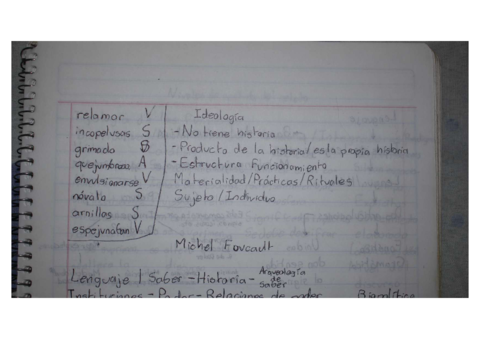 relamar V
incopelusas S
grimada S
quejumbroza A
envulsionarse V
návalo S
arnillos S
espejunaban V
Ideología
- No tiene historia
- Producto de la historia/esta propia historia
- Estructura Funcionamiento
Materialidad/Prácticas/Rituales
Sujeto/Individuo
Michel Foucault
Lenguaje | Saber - Historia - Arqueología de saber
Instituciones - Poder - Relaciones de poder